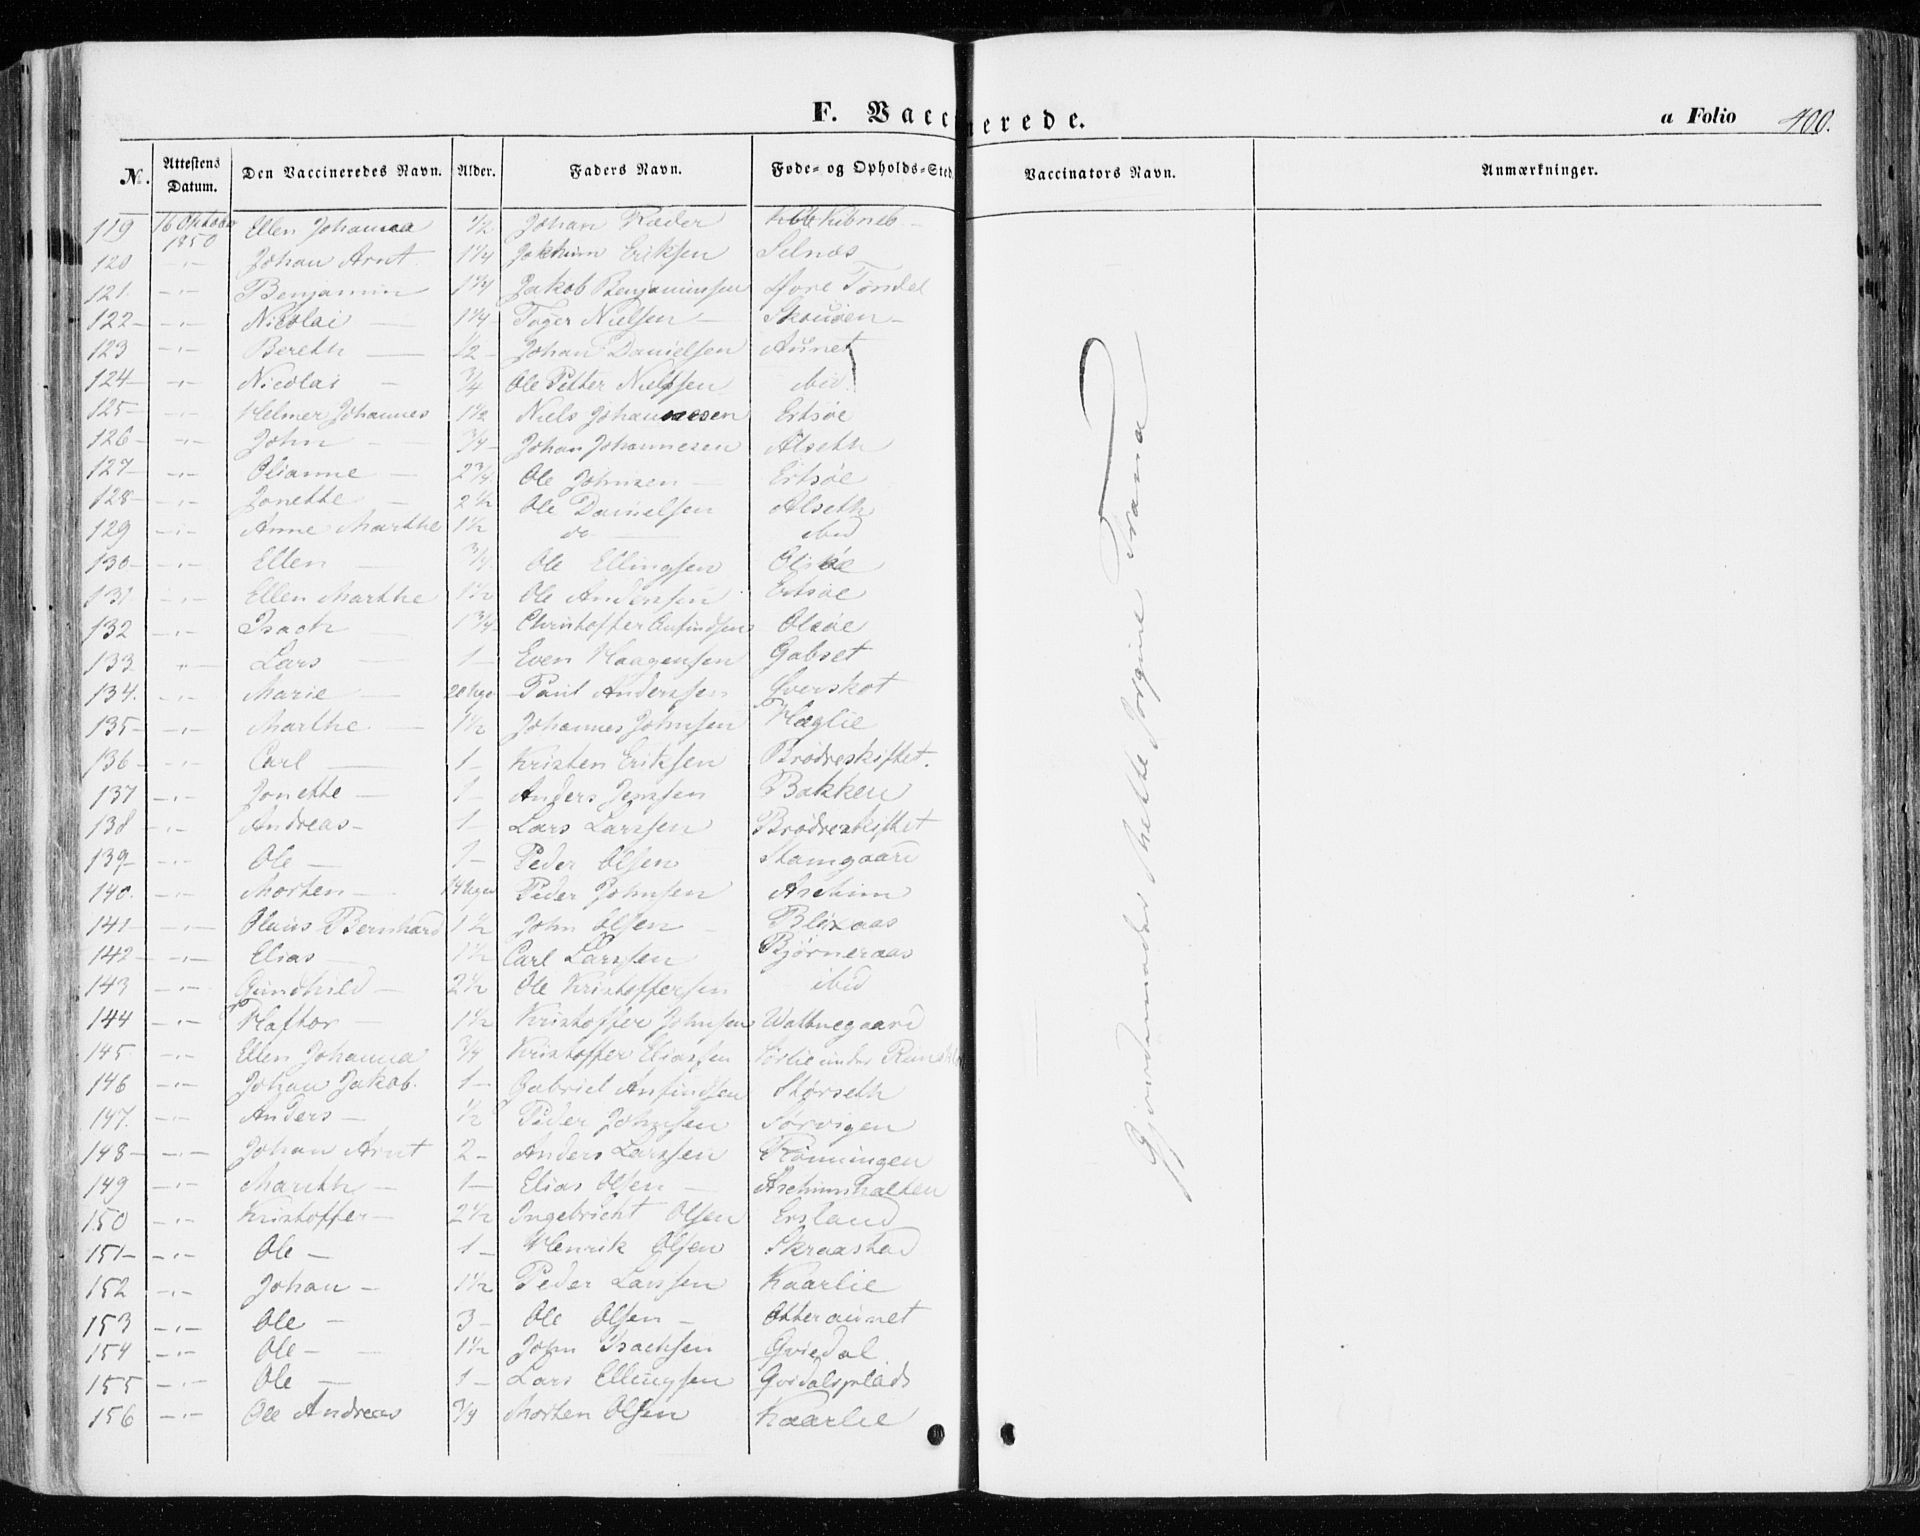 F. Vaccinerede.
a Folio 400.
No. Attestens Datum. Den Vaccineredes Navn. Alder. Faders Navn. Føde- og Opholds-Sted. Vaccinators Navn. Anmærkninger.
119 16 Oktober 1850 Ellen Johanna 1/2 Johan Ræder
120 -"- Johan Arnt 1 1/4 Jokhim Eriksen Selnæs
121. -"- Benjamin 1 3/4 Jakob Benjaminsen Øvre Tøndel
122 -"- Nicolai 1 1/4 Toger Nielsen
123 -"- Bereth 1/2 Johan Danielsen Aunet
124 -"- Nicolai 3/4 Ole Petter Nielssen ibid
125 -"- Helmer Johannes 1 1/2 Niels Johannesen Ertsøe
126 -"- John 3/4 Johan Johannesen Alseth
127 -"- Olianne 2 3/4 Ole Johnsen Ertsøe
128 -"- Jonette 2 1/2 Ole Danielsen Alseth
129 -"- Anne Marthe 1 1/2 do ibid
130 -"- Ellen 3/4 Ole Ellingsen Olsøe
131 -"- Ellen Marthe 1 1/2 Ole Anderssen Ertsøe
132 -"- Isach 1 3/4 Christoffer Anfindsen Olsøe
133 -"- Lars 1 Even Haagensen Gabset
134. -"- Marie 20 Uger Paul Anderssen Sverskot
135 -"- Marthe 1 1/2 Johannes Johnsen Hæglie
136 -"- Carl 1 Kristen Eriksen Brødreskiftet.
137 -"- Jonette 1 Anders Jenssen Bakken
138 -"- Andreas 1 Lars Larssen Brødreskiftet
139 -"- Ole 1 Peder Olsen Stamgaard
140. -"- Morten 14 Uger Peder Johnsen Aschim
141 -"- Olaus Bernhard 1 1/2 John Olsen Blixaas
142 -"- Elias 1 1/2 Carl Larssen Bjørneraas
143 -"- Gundhild 2 1/2 Ole Kristoffersen ibid
144 -"- Haftor 1 1/2 Kristoffer Johnsen Wattnegaard
145 -"- Ellen Johanna 3/4 Kristoffer Eliassen Sørlie under
146 -"- Johan Jakob. 1 Gabriel Anfindsen Størseth
147. -"- Anders 1/2 Peder Johnsen Sørvigen
148 -"- Johan Arnt 2 Anders Larssen Rønningen
149 -"- Marith 1 Elias Olsen Aschimshalten
150 -"- Kristoffer 2 1/2 Ingebricht Olsen Ersland
151 -"- Ole 1 Henrik Olsen Skraastad
152 -"- Johan 1 1/2 Peder Larssen Kaarlie
153 -"- Ole 3 Ole Olsen Otteraunet
154 -"- Ole 1 1/2 John Isachsen Gvidal
155 -"- Ole 1 Lars Ellingsen Gvidalsplads
156 -"- Ole Andreas 3/4 Morten Olsen Kaarlie
Gjordemoder Mette Jorgine Trana